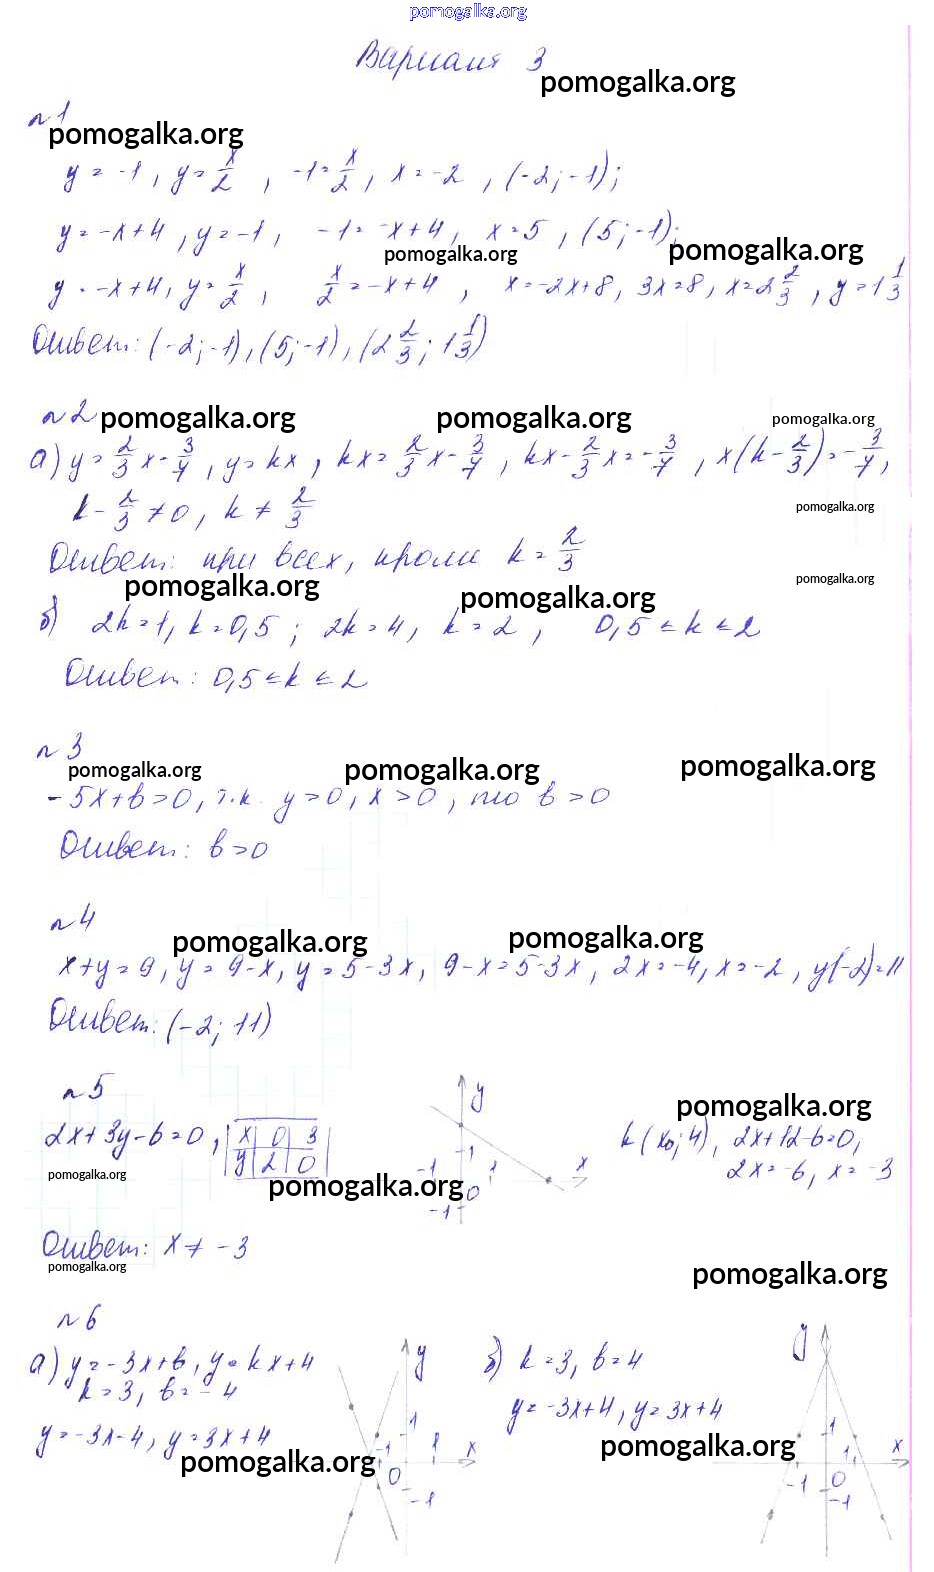 pomogalka.org
Вариант 3
pomogalka.org
№1
pomogalka.org
y = -1, y = x/2, -1 = x/2, x = -2, (-2; -1);
y = -x+4, y = -1, -1 = -x+4, x = 5, (5; -1);
pomogalka.org pomogalka.org
y = -x+4, y = x/2, x/2 = -x+4, x = -2x+8, 3x = 8, x = 2 2/3, y = 1 1/3
Ответ: (-2; -1), (5; -1), (2 2/3; 1 1/3)
№2 pomogalka.org pomogalka.org pomogalka.org
а) y = 2/3 x - 3/7, y = kx, kx = 2/3 x - 3/7, kx - 2/3 x = -3/7, x(k - 2/3) = -3/7,
k - 2/3 ≠ 0, k ≠ 2/3
pomogalka.org
Ответ: при всех, кроме k = 2/3
pomogalka.org pomogalka.org pomogalka.org
б) 2k = 1, k = 0,5; 2k = 4, k = 2, 0,5 ≤ k ≤ 2
Ответ: 0,5 ≤ k ≤ 2
№3
pomogalka.org pomogalka.org pomogalka.org
-5x+b > 0, т.к. y > 0, x > 0, то b > 0
Ответ: b > 0
№4
pomogalka.org pomogalka.org
x+y = 9, y = 9-x, y = 5-3x, 9-x = 5-3x, 2x = -4, x = -2, y(-2) = 11
Ответ: (-2; 11)
№5
pomogalka.org
2x+3y-6=0,
x 0 3
y 2 0
y
-1 1 1 x
0
-1
k(x₀; 4), 2x+12-6=0,
2x = -6, x = -3
pomogalka.org pomogalka.org
Ответ: x ≠ -3
pomogalka.org pomogalka.org
№6
а) y = -3x+b, y = kx+4
k = 3, b = -4
y = -3x-4, y = 3x+4
pomogalka.org
y
1
-1 1 x
0
-1
б) k = 3, b = 4
y = -3x+4, y = 3x+4
pomogalka.org
y
1
-1 1 x
0
-1